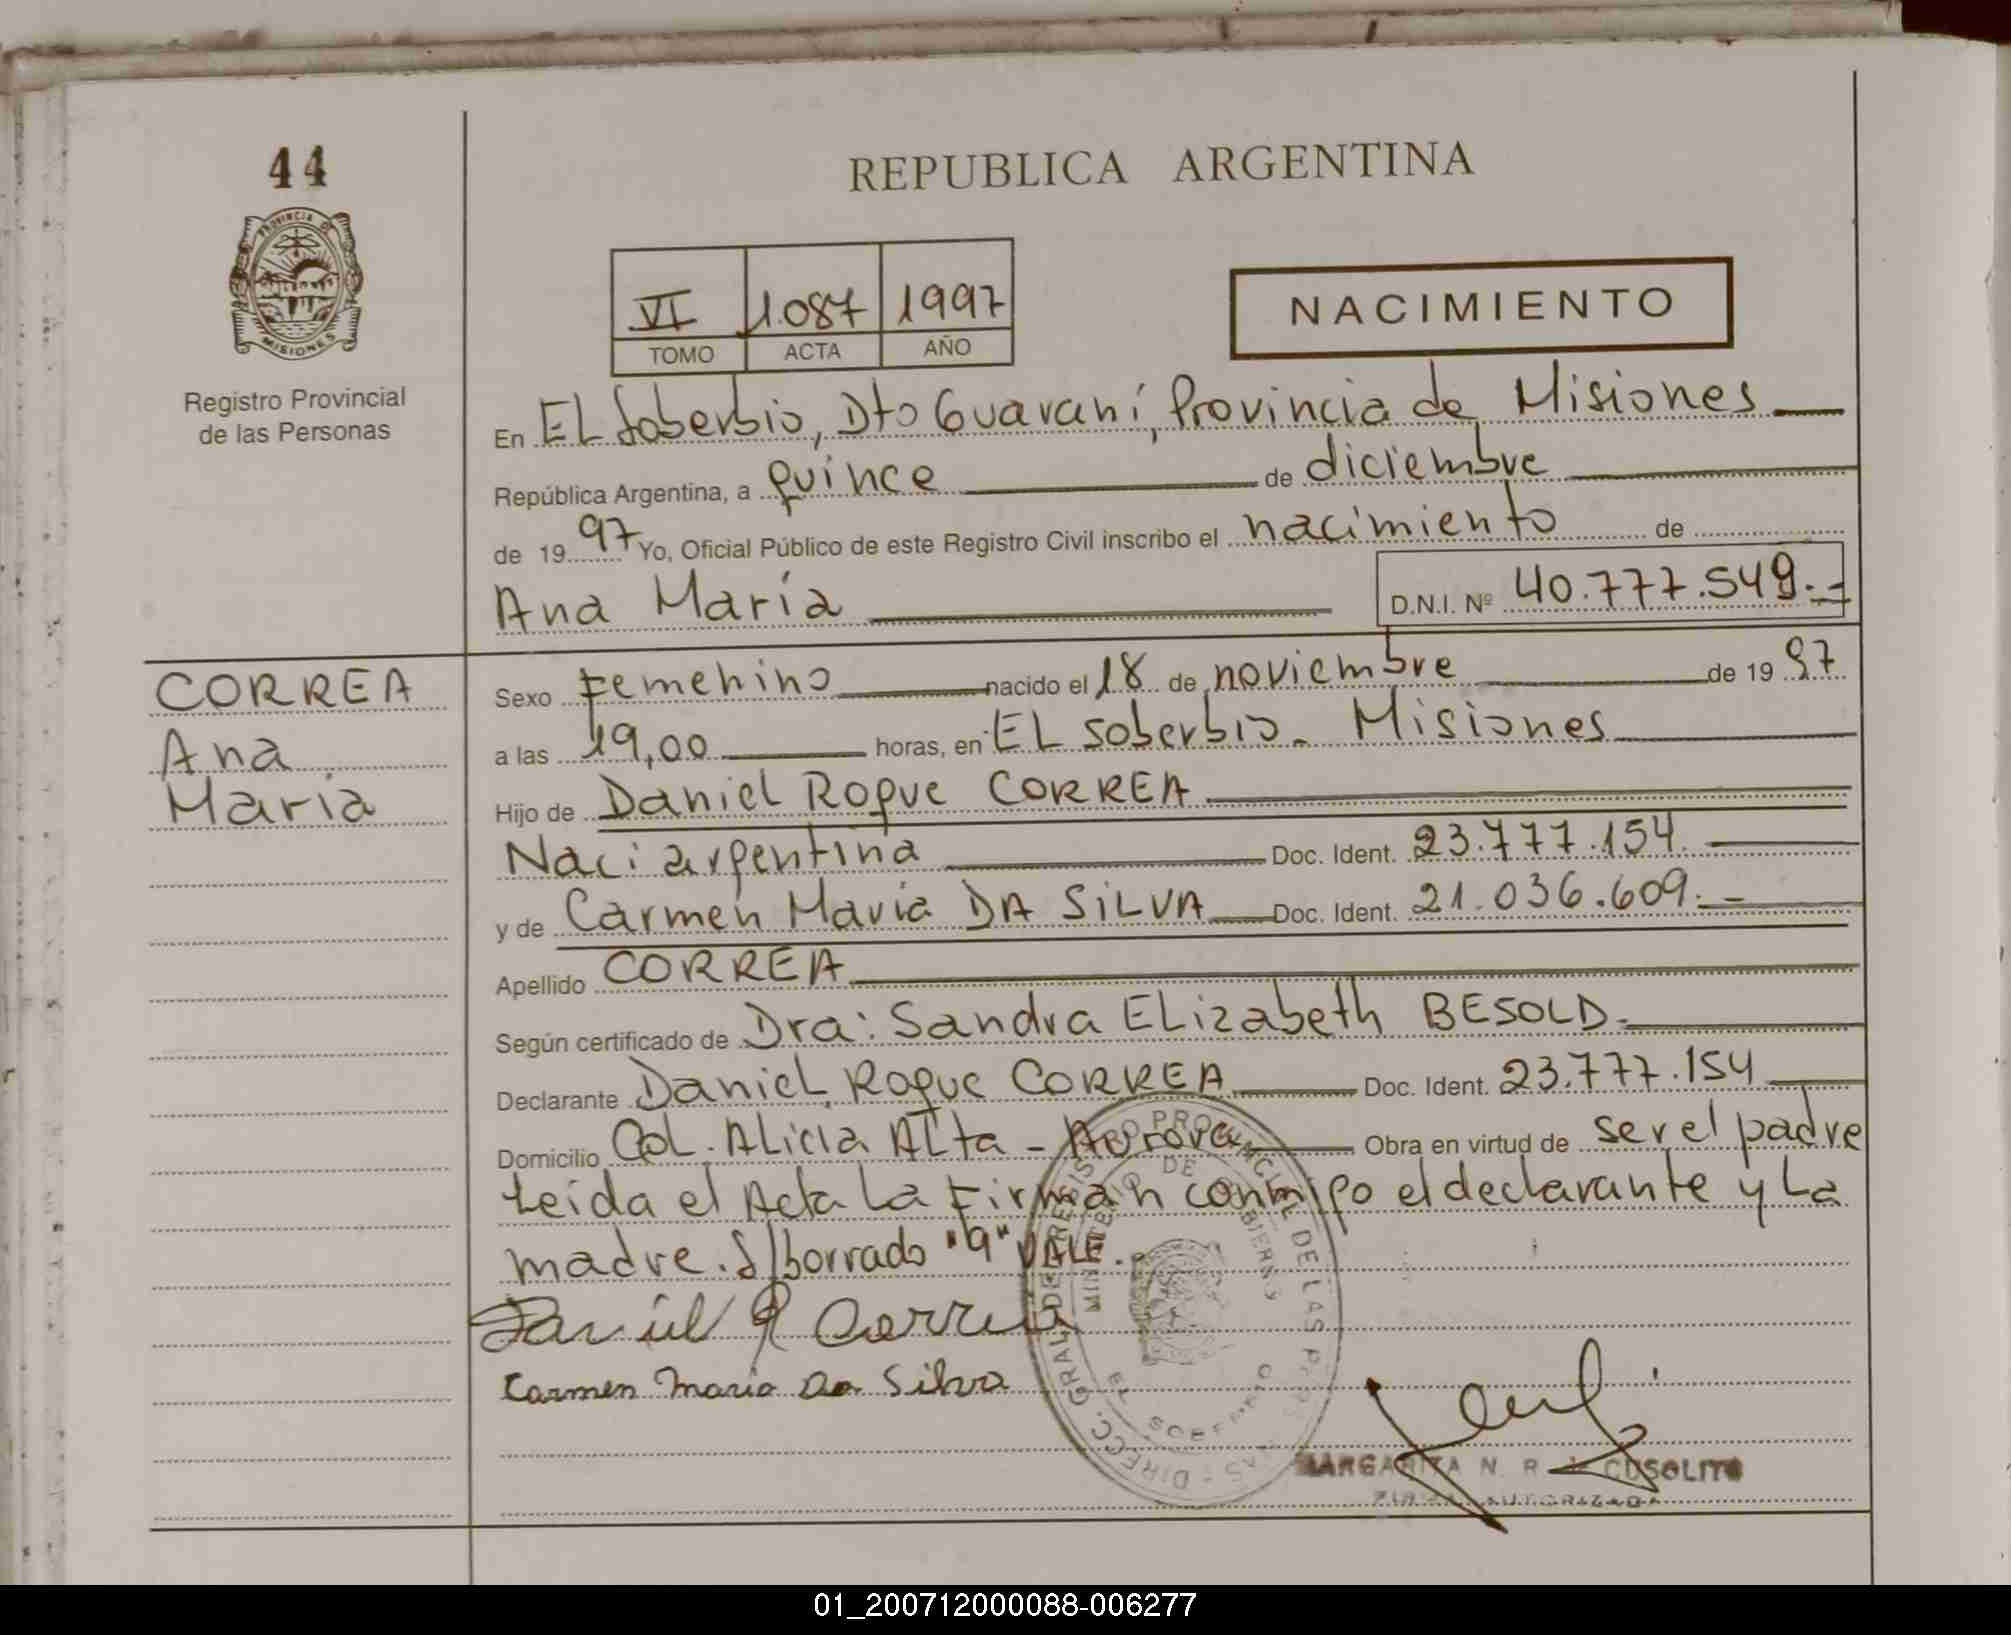 44
REPUBLICA ARGENTINA
PROVINCIA DE
MISIONES
Registro Provincial
de las Personas
VI 1.087 1997
TOMO ACTA AÑO
NACIMIENTO
En EL Soberbio, Dto Guaraní, Provincia de Misiones
República Argentina, a quince de diciembre
de 1997 Yo, Oficial Público de este Registro Civil inscribo el nacimiento de
Ana María D.N.I. Nº 40.777.549.-
CORREA
Ana
María
Sexo Femenino nacido el 18 de noviembre de 1997
a las 19,00 horas, en EL Soberbio - Misiones
Hijo de Daniel Roque CORREA
Naci argentina Doc. Ident. 23.777.154.
y de Carmen María DA SILVA Doc. Ident. 21.036.609.-
Apellido CORREA
Según certificado de Dra: Sandra ELizabeth BESOLD.
Declarante Daniel Roque CORREA Doc. Ident. 23.777.154
Domicilio CoL. Alicia ALta - Aurora Obra en virtud de ser el padre
Leida el Acta La Firman conmigo el declarante y La
madre. S/borrado "9" VALE.
Daniel R Correa
Carmen Maria Da Silva
DIRECC. GRAL. DE REGISTRO PROVINCIAL DE LAS PERSONAS
MINISTERIO DE GOBIERNO
EL SOBERBIO
MARGARITA N. R. de CUSOLITO
FIRMA AUTORIZADA
01_200712000088-006277